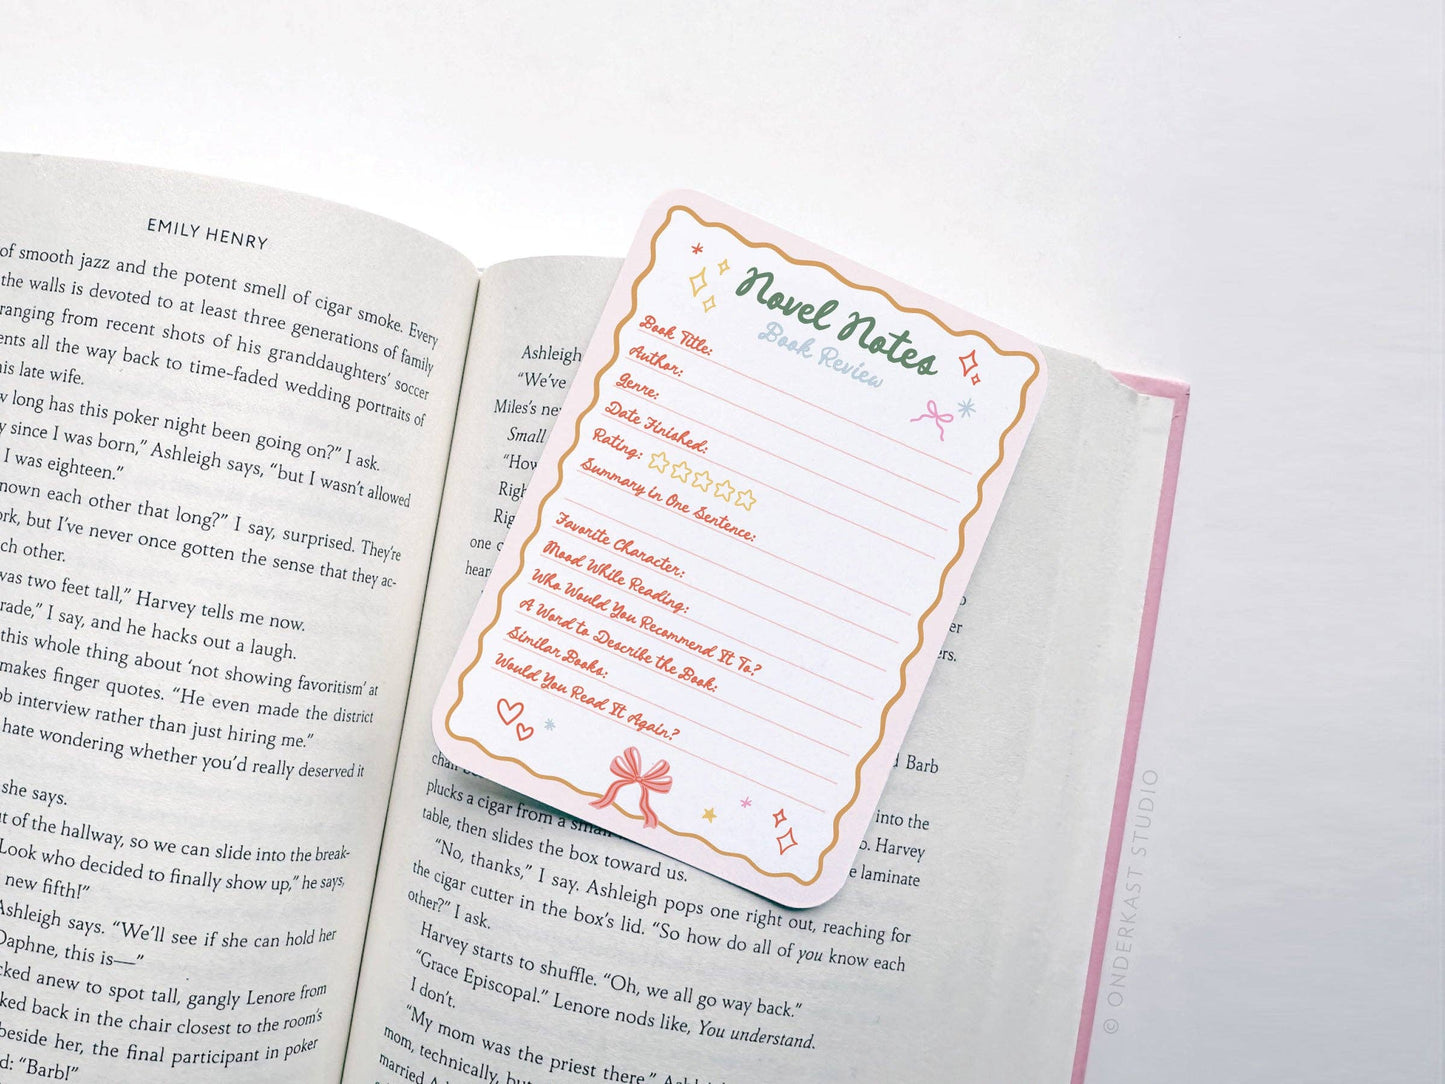 EMILY HENRY
of smooth jazz and the potent smell of cigar smoke. Every
the walls is devoted to at least three generations of family
ranging from recent shots of his granddaughters' soccer
ents all the way back to time-faded wedding portraits of
his late wife.
w long has this poker night been going on?" I ask.
y since I was born," Ashleigh says, "but I wasn't allowed
I was eighteen."
nown each other that long?" I say, surprised. They're
ork, but I've never once gotten the sense that they ac-
ch other.
was two feet tall," Harvey tells me now.
rade," I say, and he hacks out a laugh.
this whole thing about 'not showing favoritism' at
makes finger quotes. "He even made the district
ob interview rather than just hiring me."
hate wondering whether you'd really deserved it
she says.
ut of the hallway, so we can slide into the break-
Look who decided to finally show up," he says,
new fifth!"
Ashleigh says. "We'll see if she can hold her
Daphne, this is—"
cked anew to spot tall, gangly Lenore from
ked back in the chair closest to the room's
beside her, the final participant in poker
d: "Barb!"
Ashleigh
"We've
Miles's ne
Small
"How
Righ
Rig
one c
hear
Novel Notes
Book Review
Book Title:
Author:
Genre:
Date Finished:
Rating:
Summary in One Sentence:
Favorite Character:
Mood While Reading:
Who Would You Recommend It To?
A Word to Describe the Book:
Similar Books:
Would You Read It Again?
o
er
ers.
d Barb
into the
o. Harvey
e laminate
plucks a cigar from a small
table, then slides the box toward us.
"No, thanks," I say. Ashleigh pops one right out, reaching for
the cigar cutter in the box's lid. "So how do all of you know each
other?" I ask.
Harvey starts to shuffle. "Oh, we all go way back."
"Grace Episcopal." Lenore nods like, You understand.
I don't.
"My mom was the priest there,"
mom, technically, but
married
© ONDERKAST STUDIO